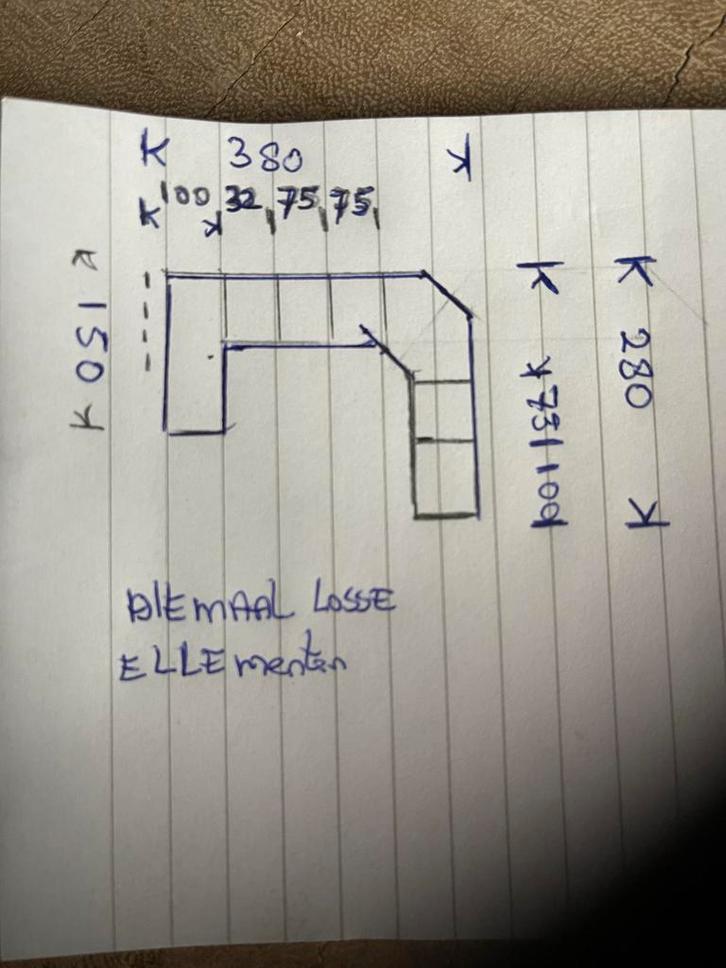 380
100 32 75 75
150
280
73 100
ALLEMAAL LOSSE
ELLEmenten